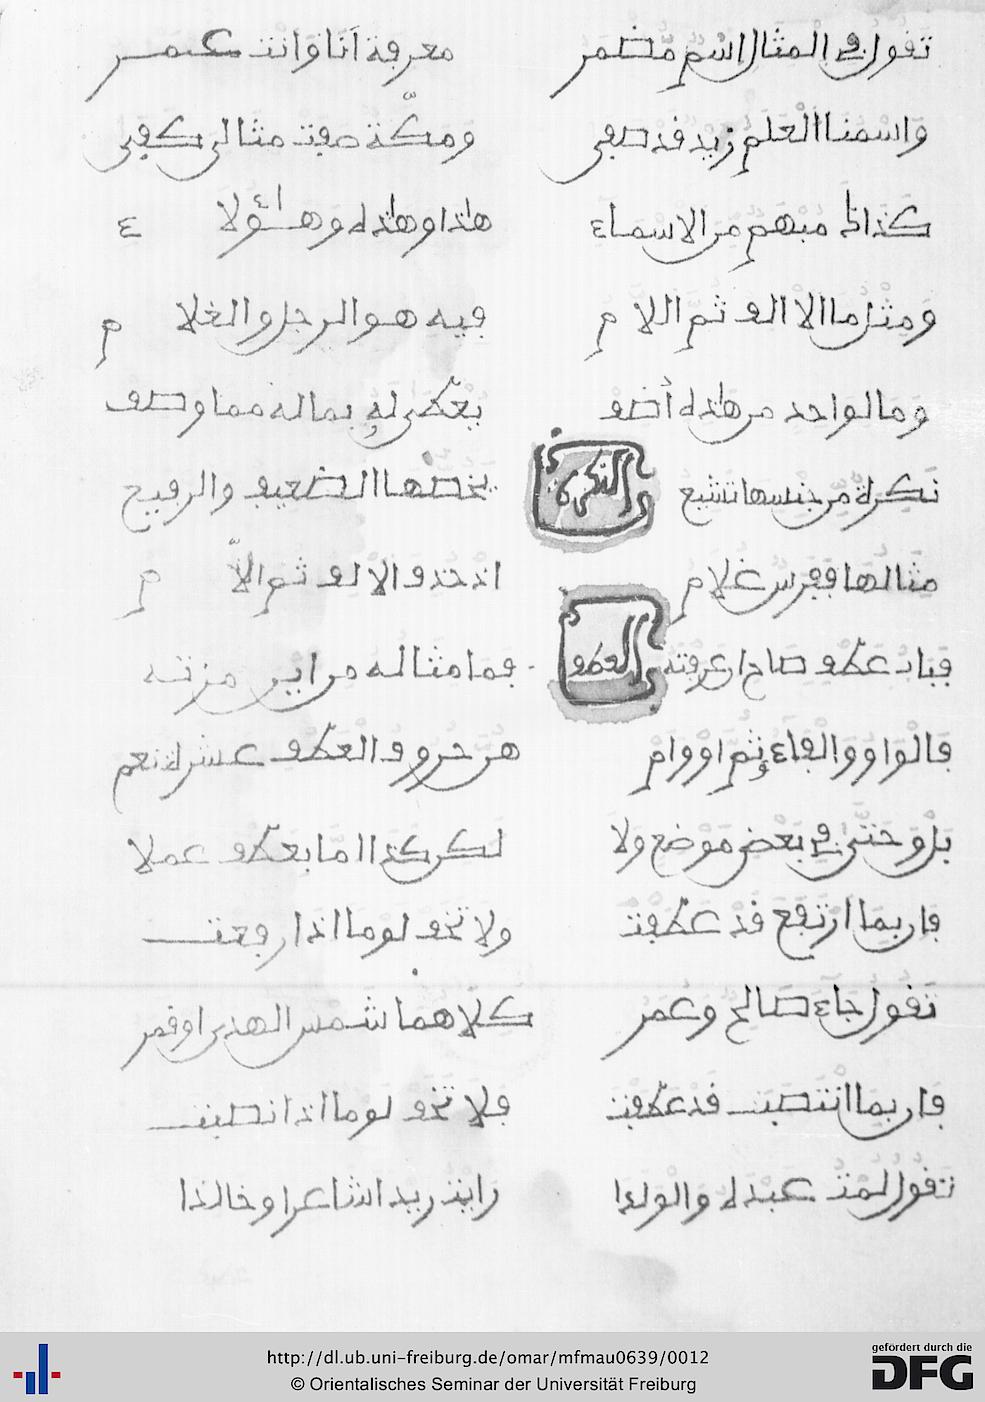 تقول في المثال اسم مضمر معرفة أنا وأنت عمر
واسمنا العلم زيد قد صفى ومكة صفت مثالي كفى
كذاك مبهم من الاسماء هذا وهذه وهاؤلاء
ومثل ما الالف ثم اللام فيه هو الرجل والغلام
وما لواحد من هذه أضف يعطى له بماله مما وصف
نكرة من جنسها تشيع النكرة يخصها الضعيف والرفيع
مثالها ففرس غلام اذ حذفوا الالف ثم اللام
فباب عطف صاح إن عرفته العطف فما مثاله من اين
فالواو والفاء وثم أو وأم هن حروف العطف عشرة نعم
بل وحتى في بعض موضع ولا لكن كذا اما بعطف عملا
فان بما ارتفع قد عطفت ولا تخف لوما اذا رفعت
تقول جاء صالح وعمر كلاهما شمس الهدى او قمر
فان بما انتصب قد عطفت فلا تخف لوما اذا نصبت
تقول لمت عبده والولدا رايت زيدا شاعرا وخالدا
http://dl.ub.uni-freiburg.de/omar/mfmau0639/0012
© Orientalisches Seminar der Universität Freiburg
gefördert durch die
DFG